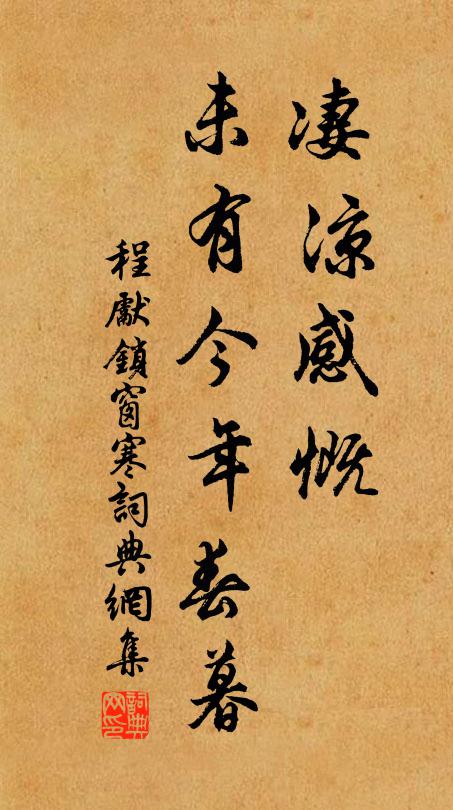 凄涼感慨
未有今年春暮
程獻鎖窗寒詞典網集
詞典
网印